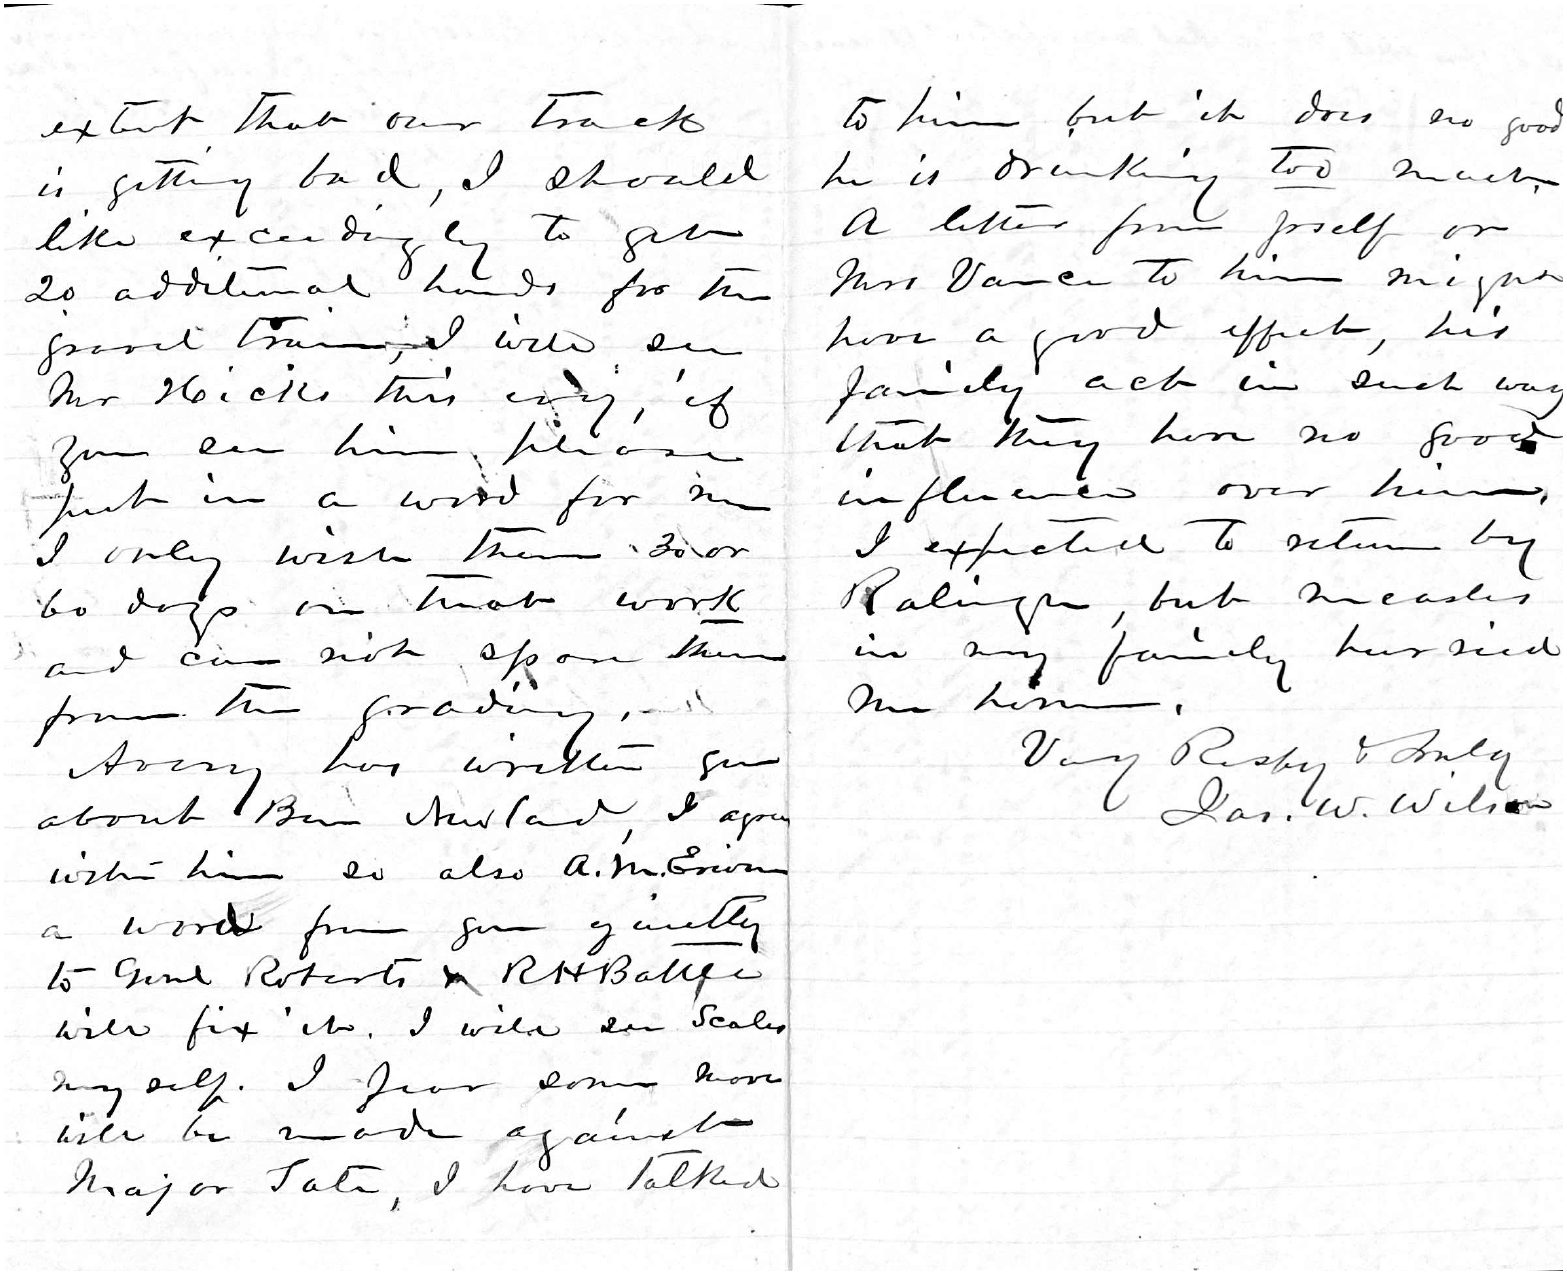 extent that our track
is getting bad, I should
like exceedingly to get
20 additional hands for the
gravel train, I will see
Mr Hicks this evg, if
you see him please
put in a word for me
I only wish them 30 or
60 days on that work
and can not spare them
from the grading.
Avery has written you
about Ben Newland, I agree
with him so also A.M. Erwin
a word from you quietly
to Genl Roberts & R H Battle
will fix it. I will see Scales
myself. I fear some move
will be made against
Major Tate, I have talked
to him but it does no good
he is drinking too much.
A letter from yself or
Mrs Vance to him might
have a good effect, his
family act in such way
that they have no good
influence over him.
I expected to return by
Raleigh, but measles
in my family hurried
me home.
Very Respy & truly
Jas. W. Wilson